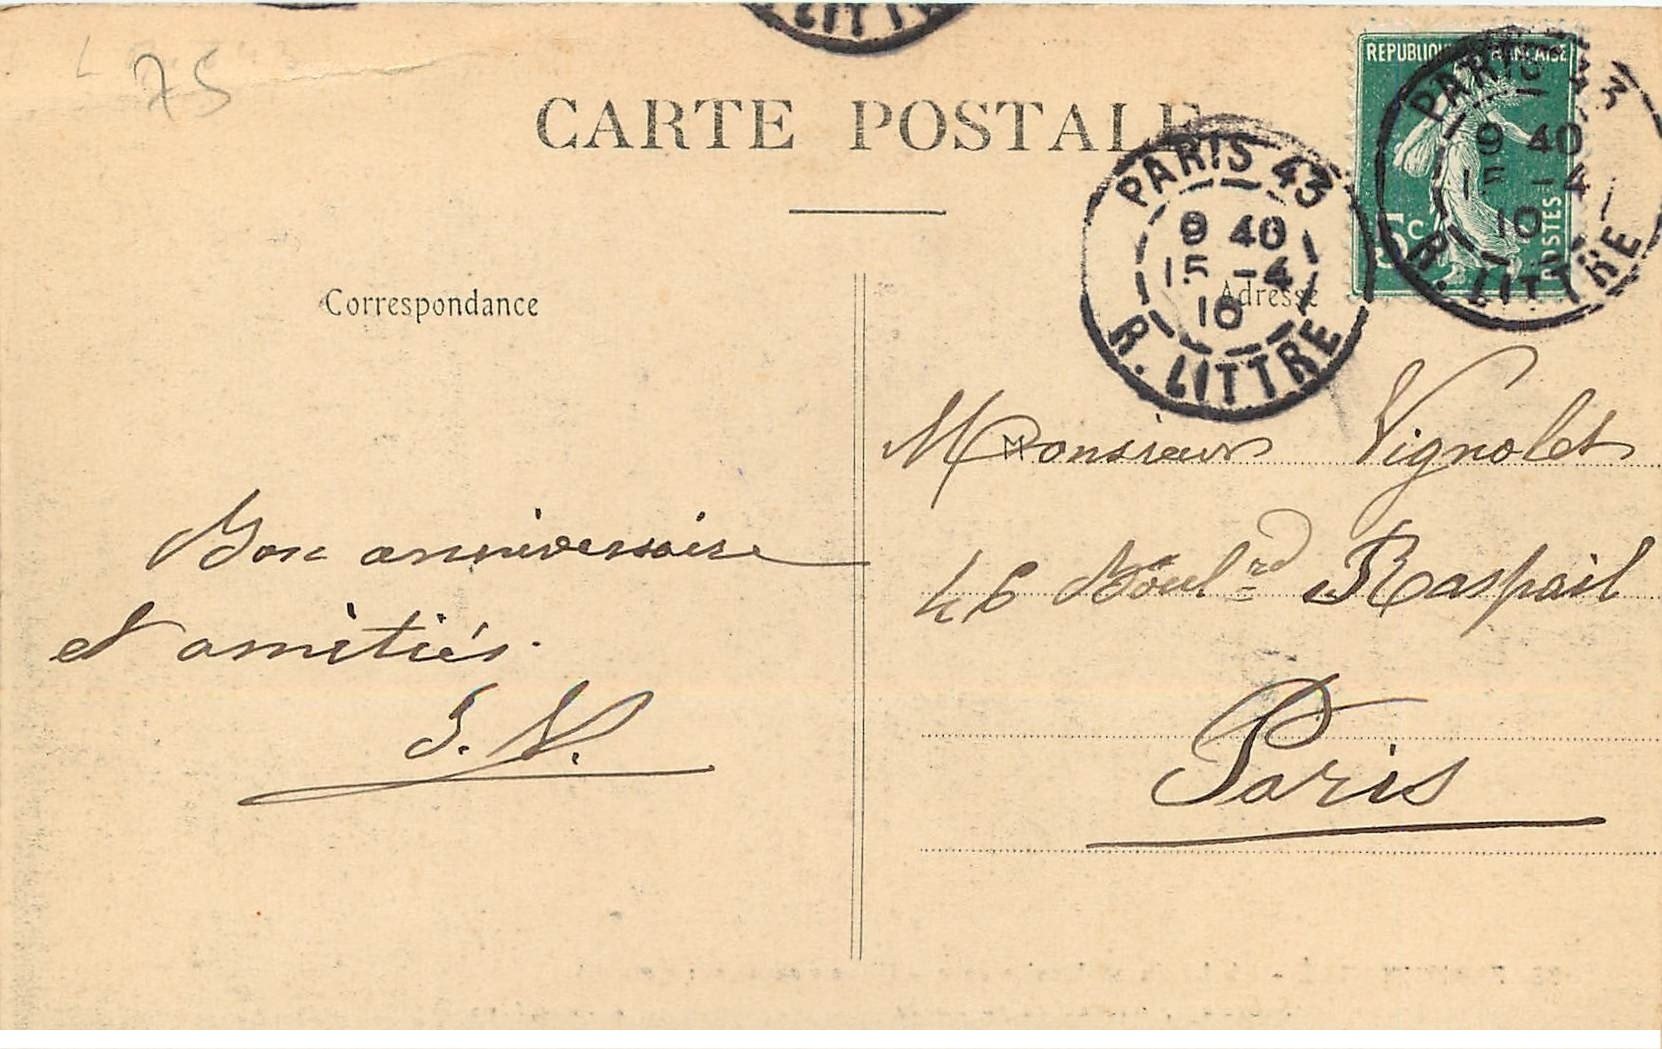 LITTRE
75
CARTE POSTALE
REPUBLIQUE FRANÇAISE
5c
POSTES
PARIS 43
9 40
15 -4
10
R. LITTRE
PARIS 43
9 40
15 -4
10
R. LITTRE
Correspondance
Adresse
M
Monsieur Vignolet
46 Boul^rd Raspail
Paris
Bon anniversaire
et amitiés.
J. V.